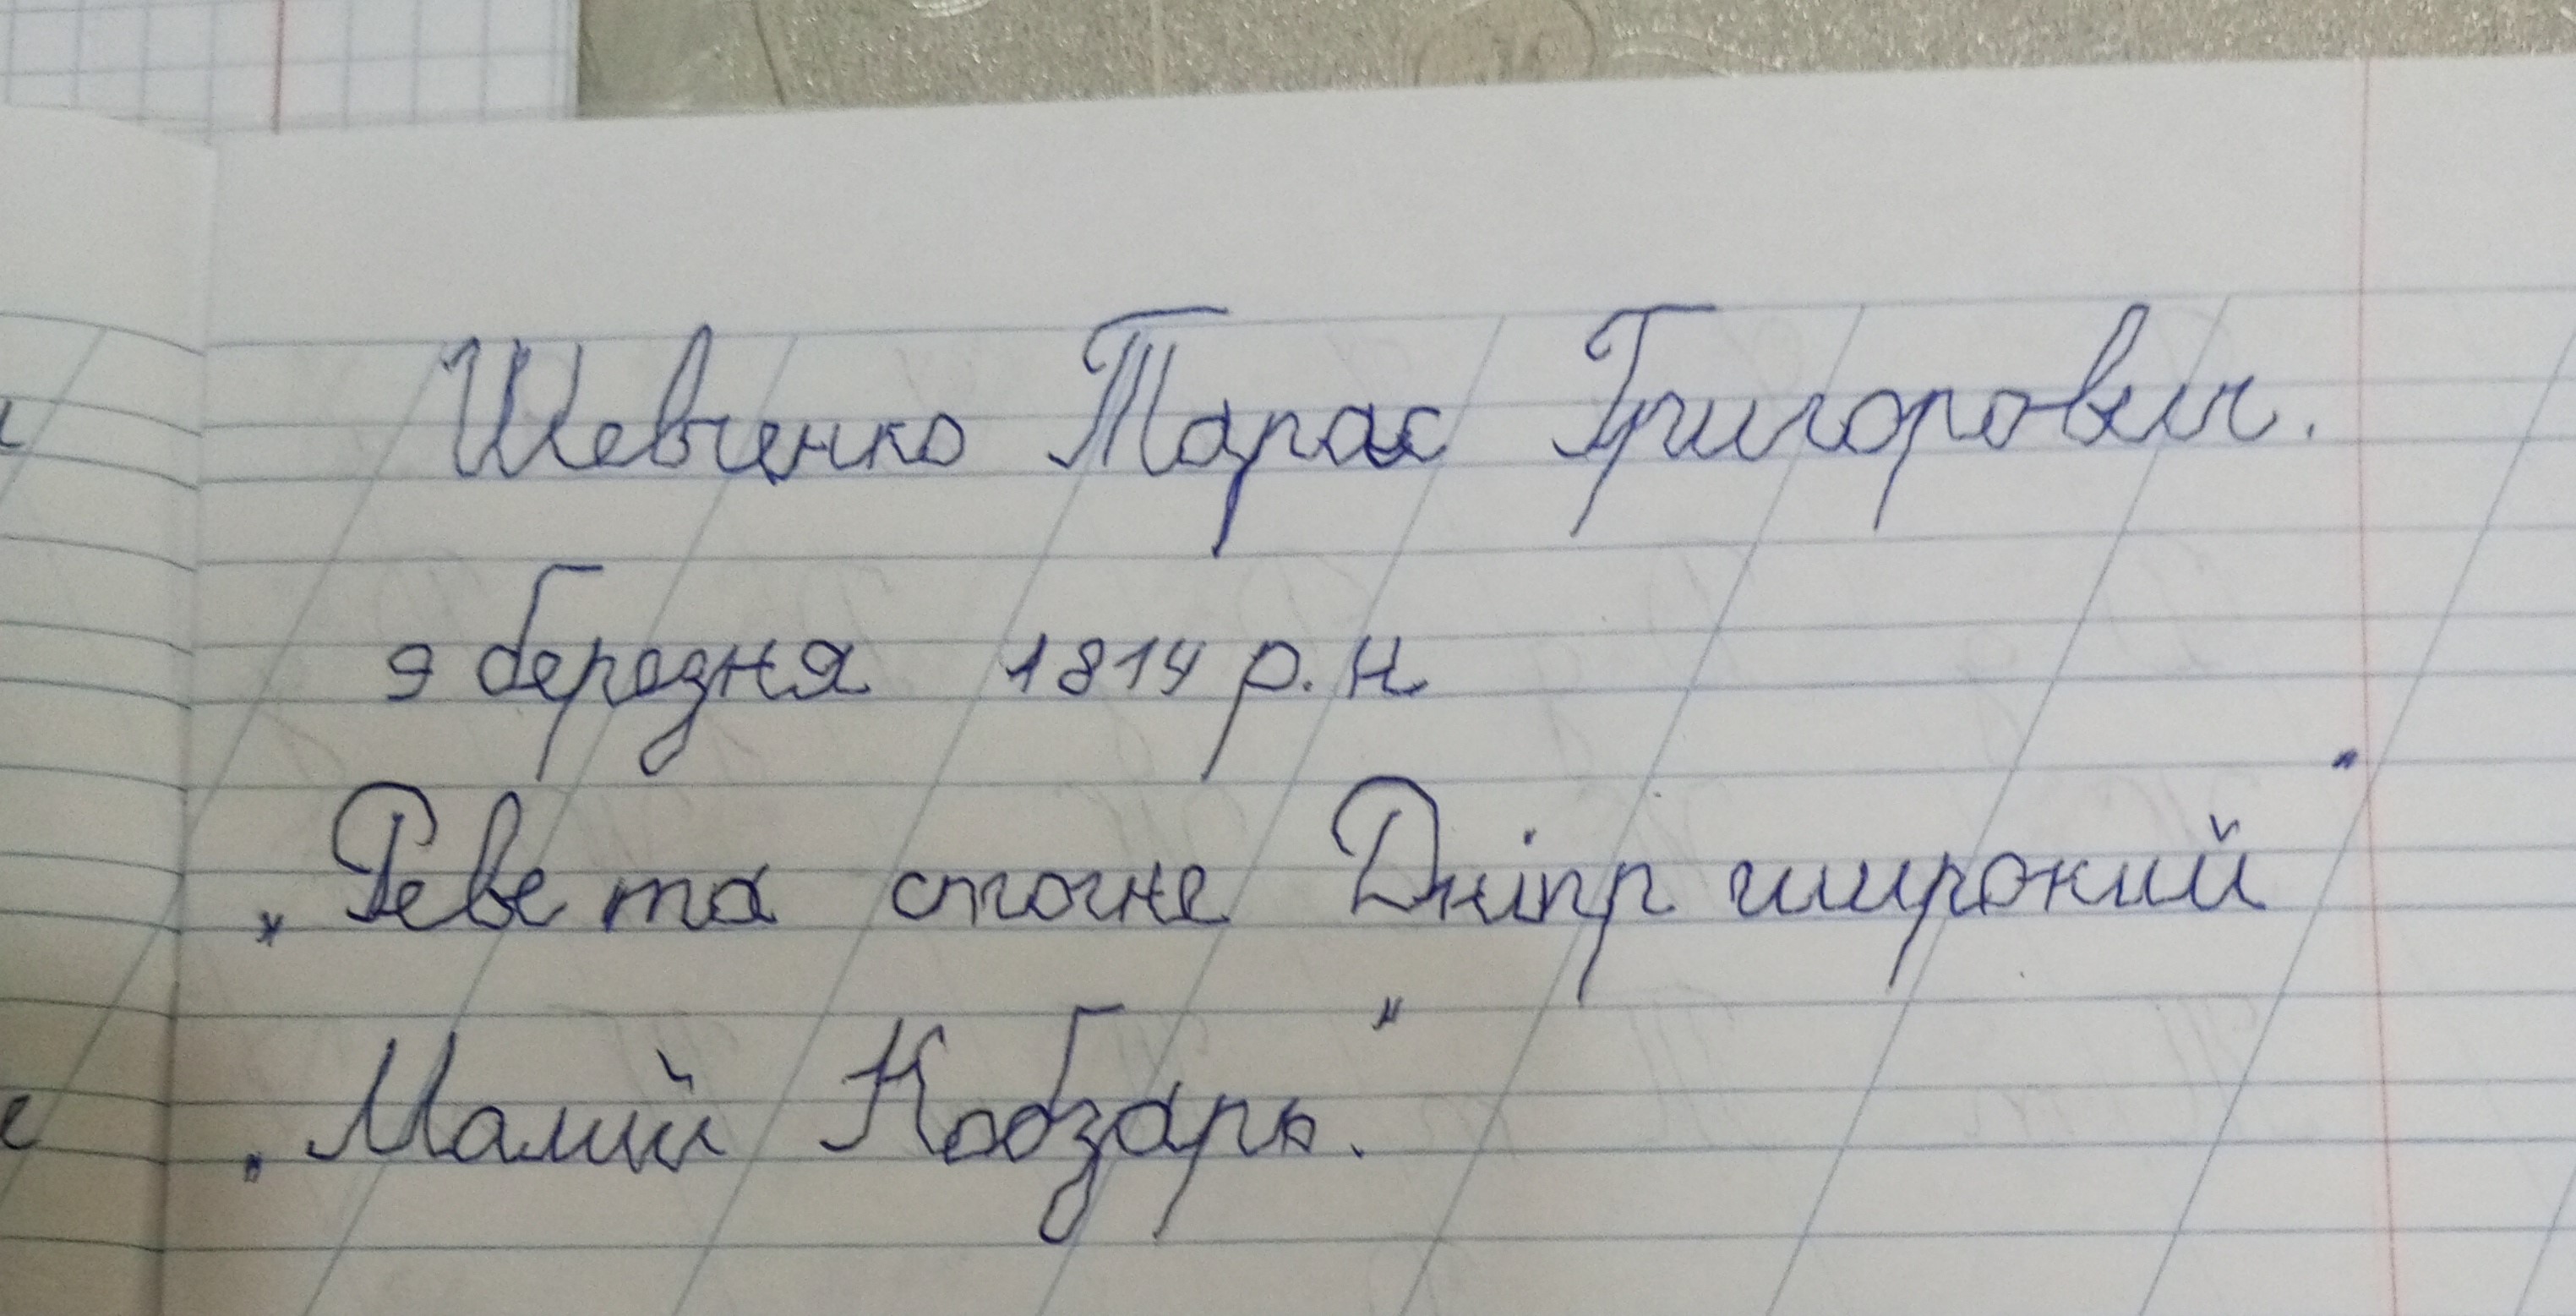 Шевченко Тарас Григорович.
9 березня 1814 р. н
„Реве та стогне Дніпр широкий"
„Малий Кобзарь."